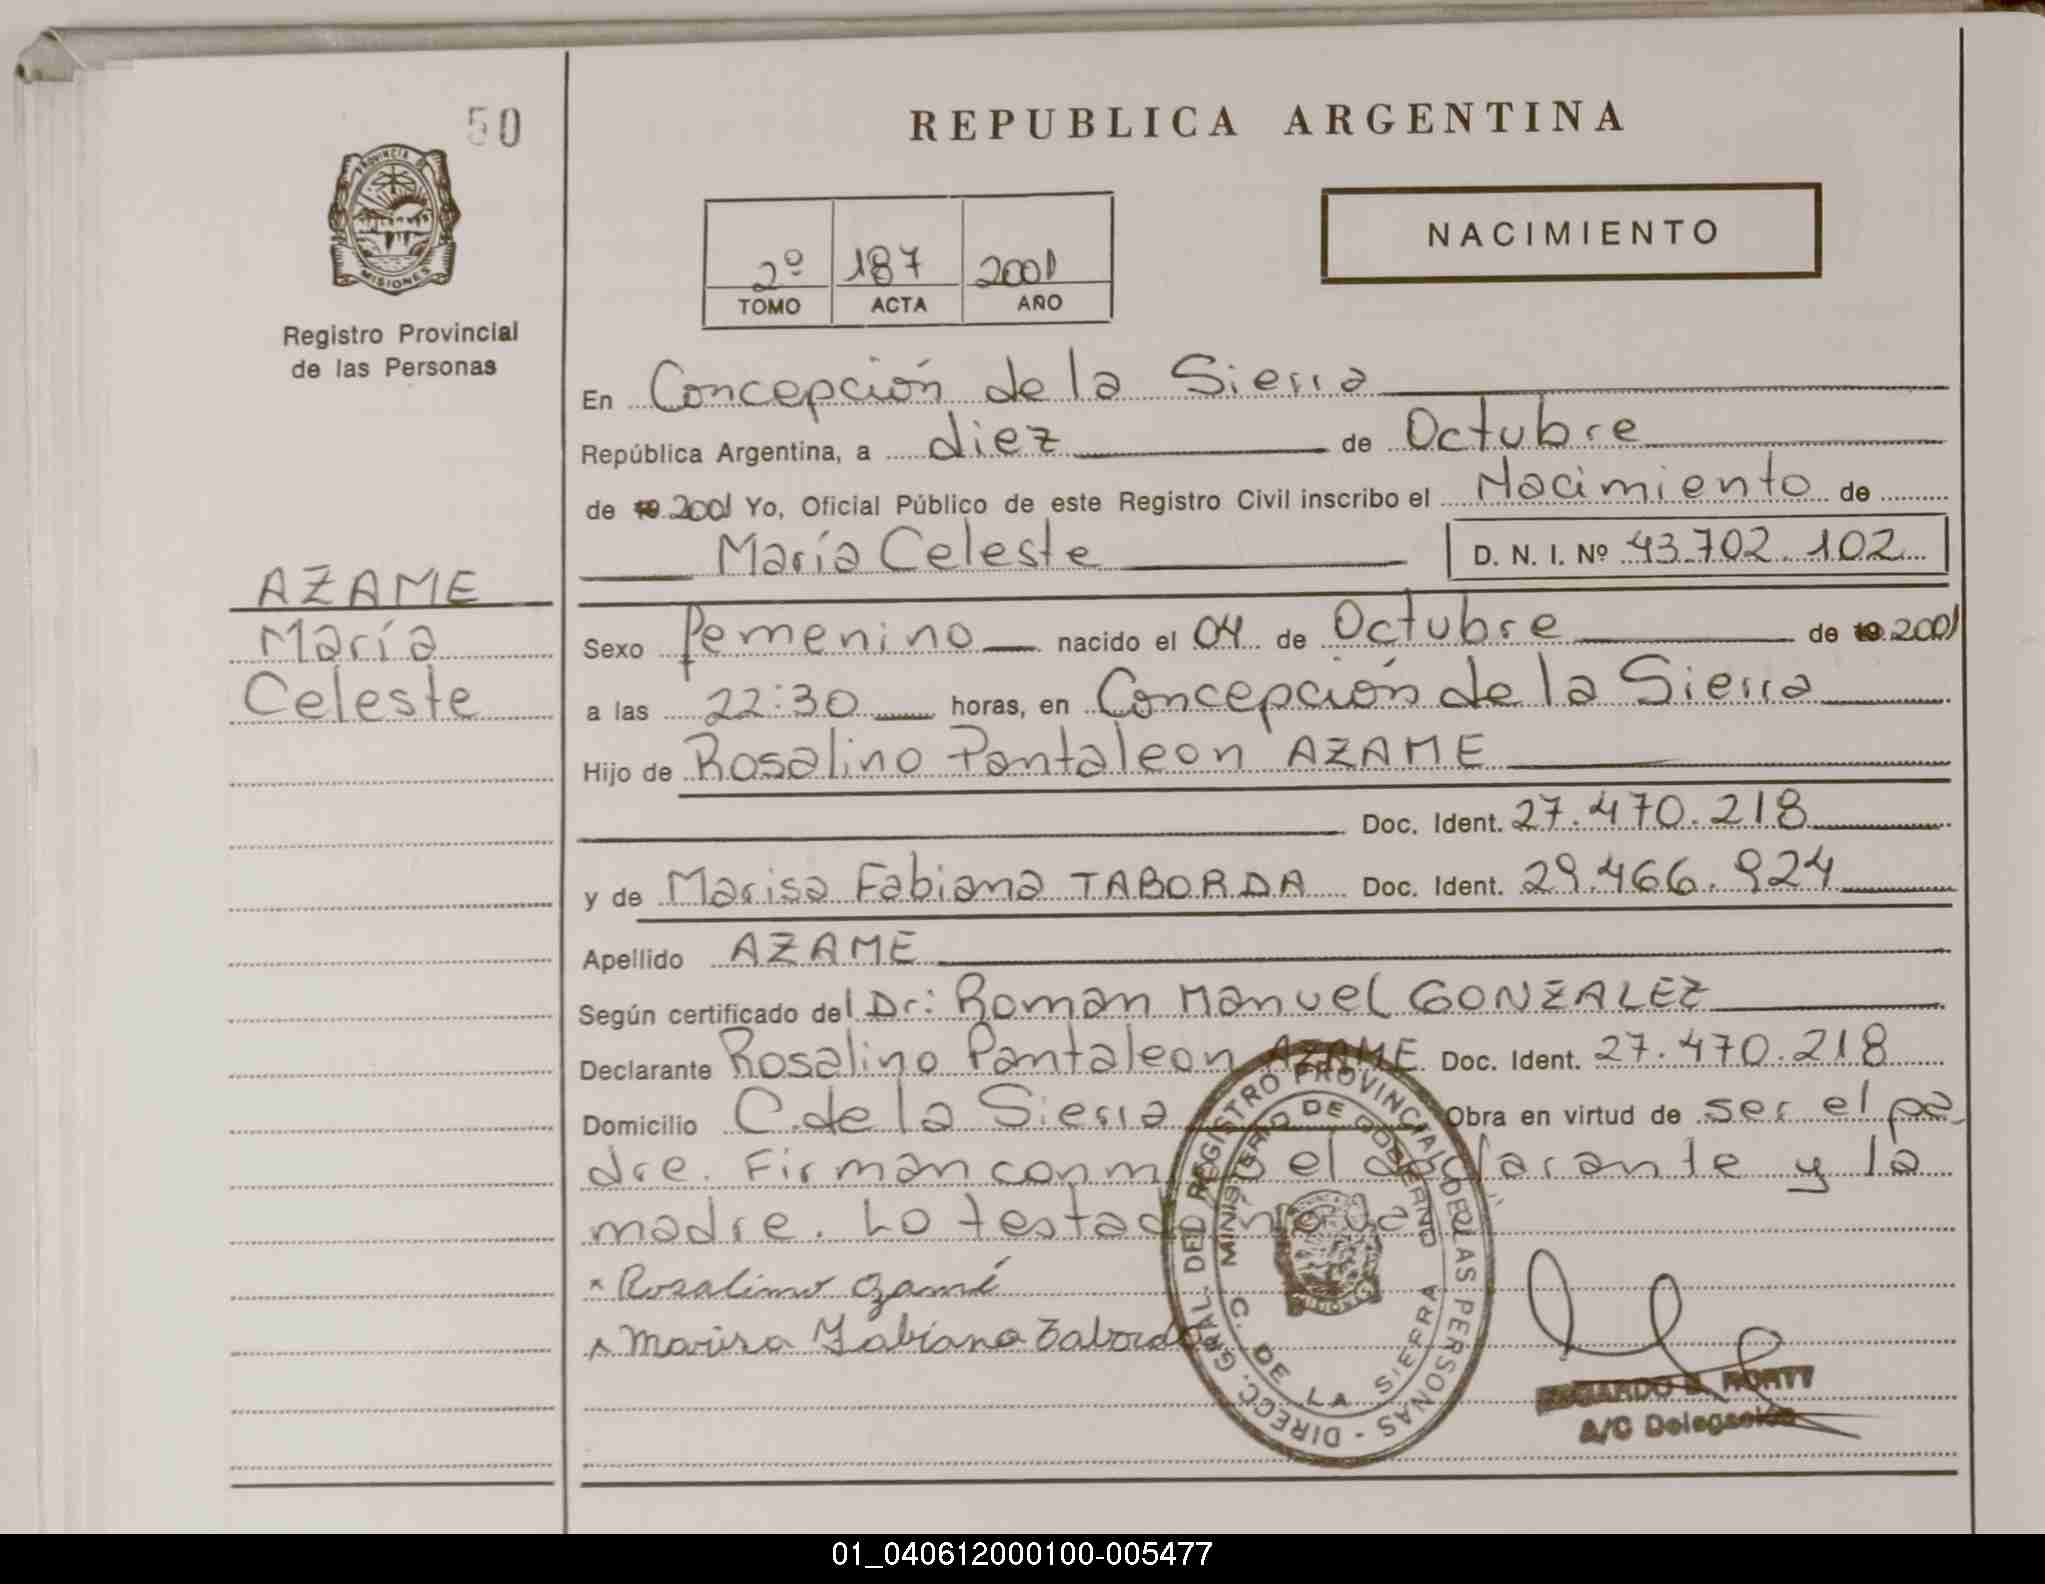 50
PROVINCIA DE
MISIONES
Registro Provincial
de las Personas
REPUBLICA ARGENTINA
NACIMIENTO
2º 187 2001
TOMO ACTA AÑO
En Concepción de la Sierra
República Argentina, a diez de Octubre
de 19 2001 Yo, Oficial Público de este Registro Civil inscribo el Nacimiento de
María Celeste D. N. I. Nº 43.702.102
AZAME
María
Celeste
Sexo femenino nacido el 04 de Octubre de 19 2001
a las 22:30 horas, en Concepción de la Sierra
Hijo de Rosalino Pantaleon AZAME
Doc. Ident. 27.470.218
y de Marisa Fabiana TABORDA Doc. Ident. 29.466.924
Apellido AZAME
Según certificado del Dr: Roman Manuel GONZALEZ
Declarante Rosalino Pantaleon AZAME Doc. Ident. 27.470.218
Domicilio C. de la Sierra Obra en virtud de ser el pa
dre. Firman conmigo el declarante y la
madre. Lo testado no vale
x Rosalino Azamé
x Marisa Fabiana Taborda
DIRECC. GRAL. DEL REGISTRO PROVINCIAL DE LAS PERSONAS
MINISTERIO DE GOBIERNO
C. DE LA SIERRA
A/C Delegación
01_040612000100-005477